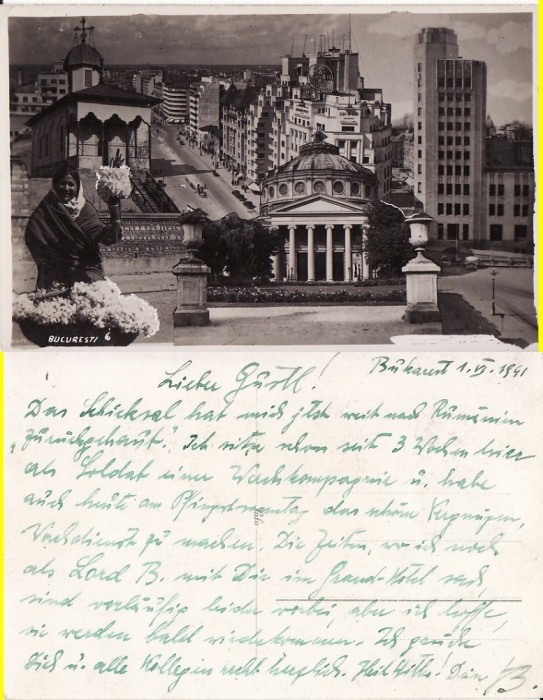 BUCURESTI 6
Bukarest 1.VI.1941
Lieber Gustl!
Das Schicksal hat mich jetzt weit nach Rumänien
"zurückgehaut". Ich sitze schon seit 3 Wochen hier
als Soldat einer Wachkompagnie u. habe
auch heute am Pfingstsonntag das schöne Vergnügen,
Wachdienst zu machen. Die Zeiten, wo ich noch
als Lord B. mit Dir im Grand-Hotel
sind vorläufig leider vorbei, aber ich hoffe,
sie werden bald wiederkommen. Ich grüsse
Dich u. alle Kollegen recht herzlich. Heil Hitler! Dein B.